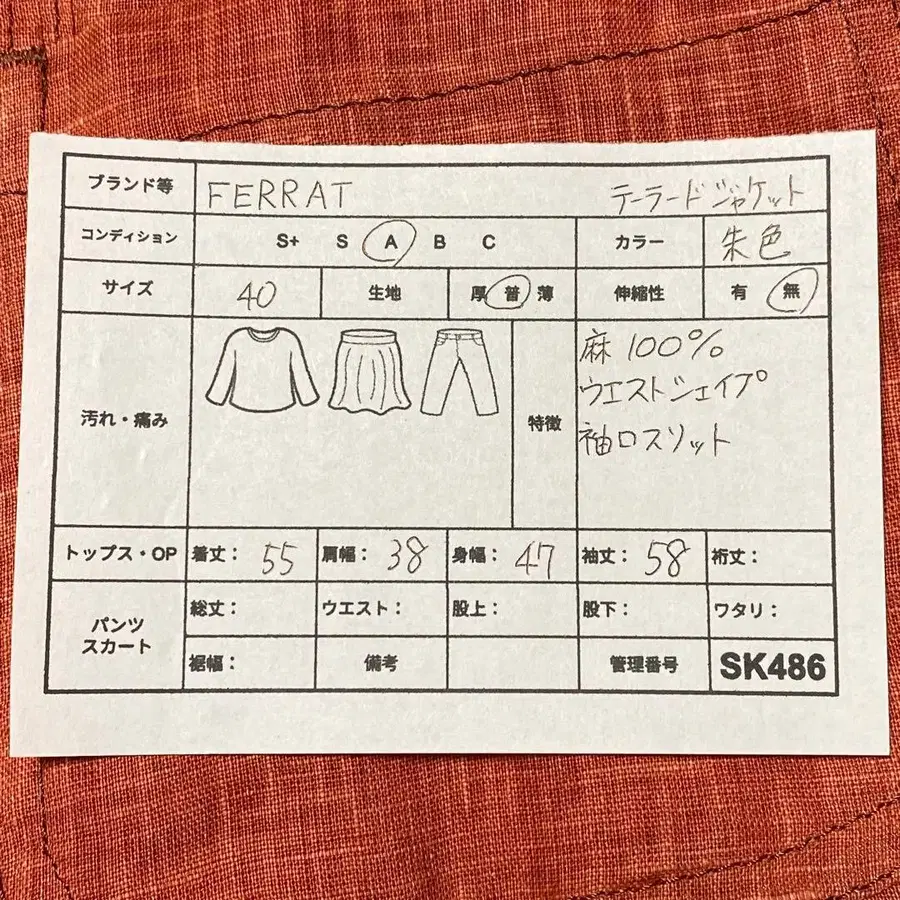 ブランド等 FERRAT テーラードジャケット
コンディション S+ S A B C カラー 朱色
サイズ 40 生地 厚 普 薄 伸縮性 有 無
汚れ・痛み 特徴 麻 100%
ウエストシェイプ
袖口スリット
トップス・OP 着丈: 55 肩幅: 38 身幅: 47 袖丈: 58 裄丈:
パンツ スカート 総丈: ウエスト: 股上: 股下: ワタリ:
裾幅: 備考 管理番号 SK486